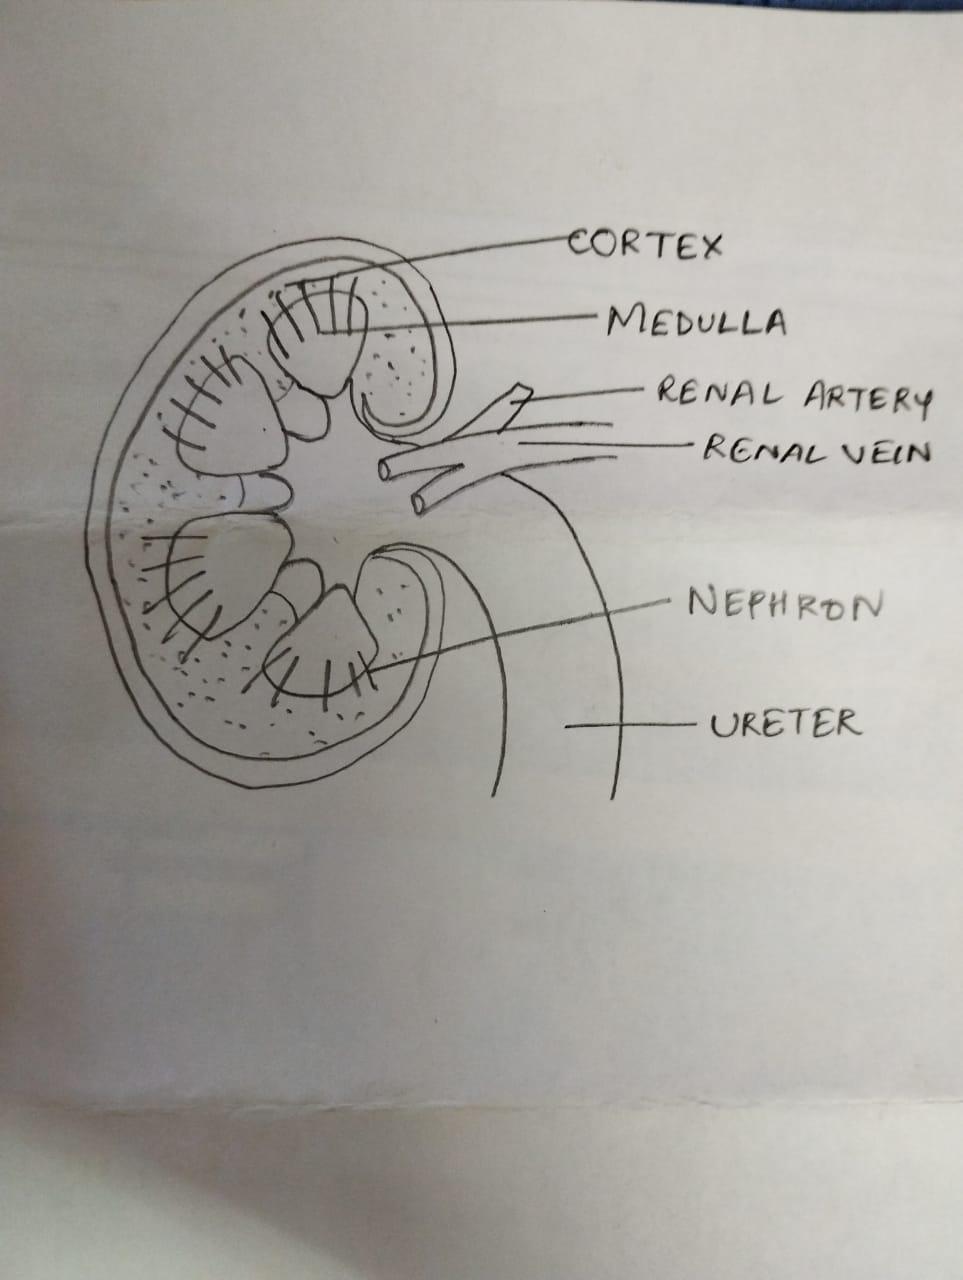 CORTEX
MEDULLA
RENAL ARTERY
RENAL VEIN
NEPHRON
URETER